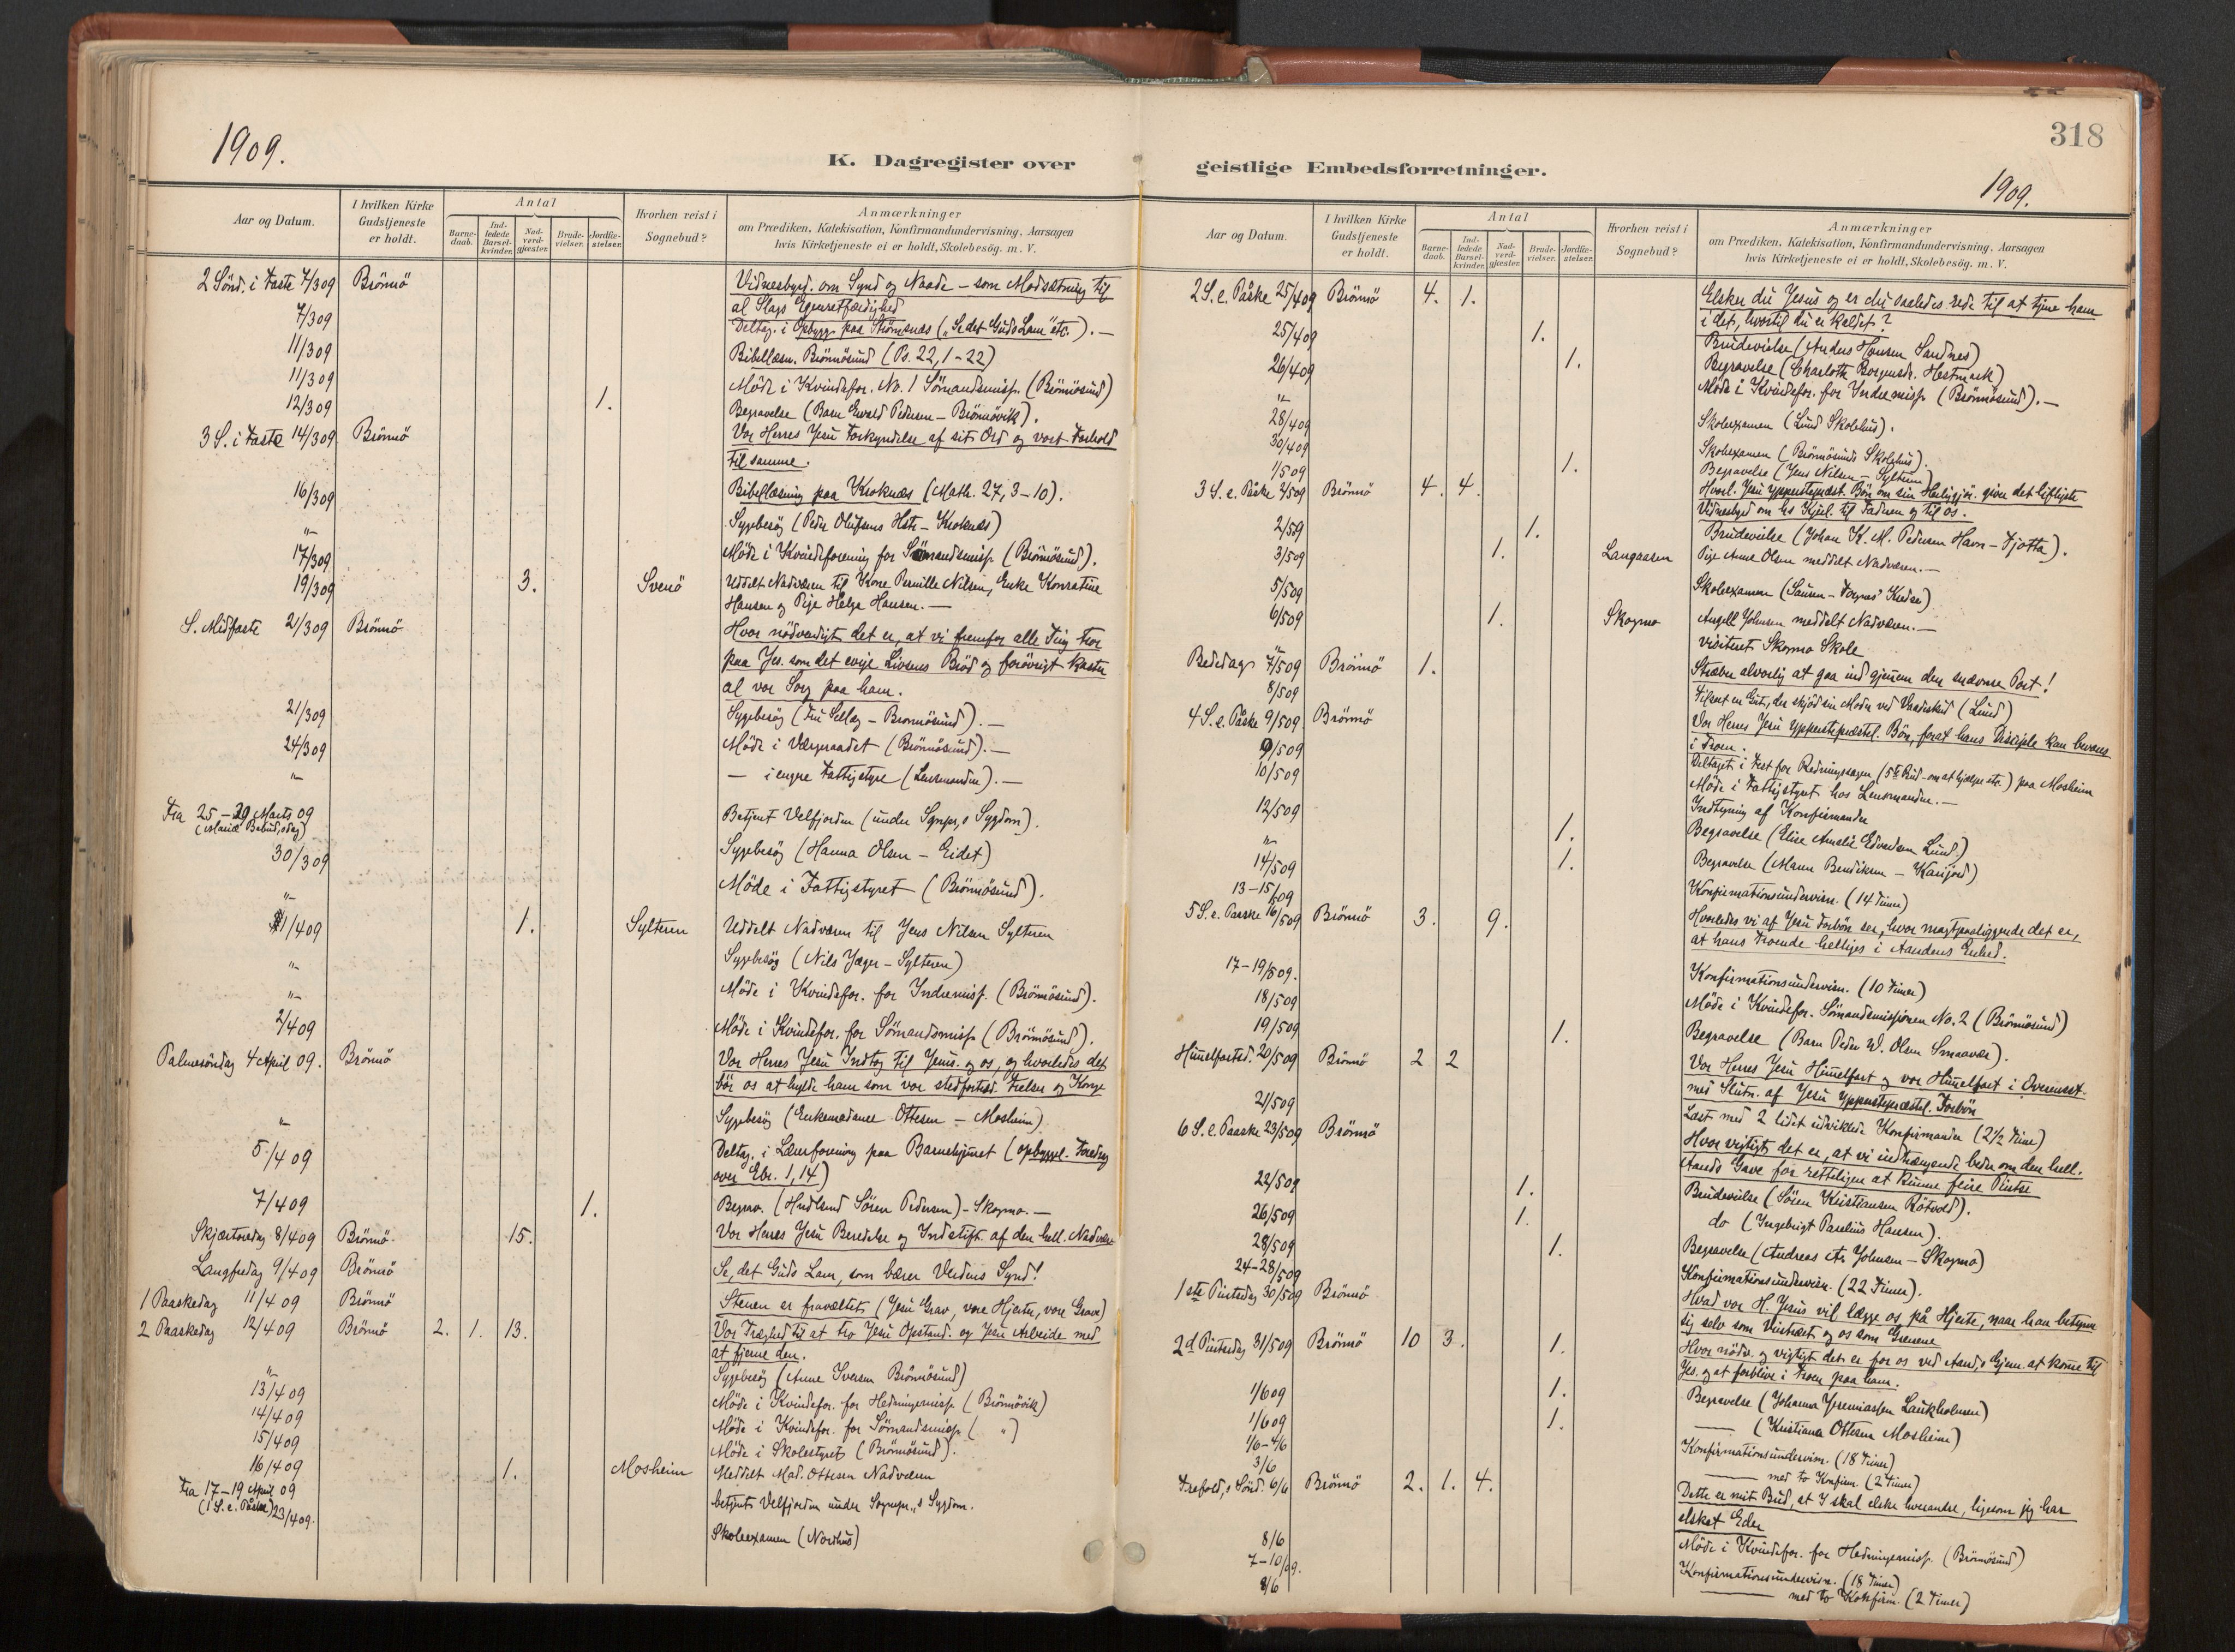 1909.
K. Dagregister over
Aar og Datum.
I hvilken Kirke Gudstjeneste er holdt.
Antal
Barne-daab.
Ind-ledede Barsel-kvinder.
Nad-verd-gjæster.
Brude-vielser.
Jordfæ-stelser.
Hvorhen reist i Sognebud?
Anmærkninger
om Prædiken, Katekisation, Konfirmandundervisning, Aarsagen
hvis Kirketjeneste ei er holdt, Skolebesög. m. V.
2 Sönd. i Faste 7/3 09 Brönnö Vidnesbyrd. om Synd og Naade – som Modsætning til
al Slags Egenretfærdighed
7/3 09 Deltag. i Opbygg. paa Strömsnæs („Se det Guds Lam" etc.). —
11/3 09 Bibellæsn. Brönnösund (Ps. 22, 1-22)
11/3 09 Möde i Kvindefor. No. 1 Sömandsmiss. (Brönnösund)
12/3 09 1. Begravelse (Barn Ewald Pedersen – Brönnövik).
3 S. i Faste 14/3 09 Brönnö Vor Herres Jesu Forkyndelse af sit Ord og vort Forhold
til samme.
16/3 09 Bibellæsning paa Kroknæs (Math. 27, 3–10).
" Sygebesög (Peder Olufsens Hstr – Kroknæs)
17/3 09 Möde i Kvindeforening for Sömandsmiss. (Brönnösund).
19/3 09 3. Svenö Uddelt Nadveren til Kone Pernille Nilsen, Enke Konradine
Hansen og Pige Helga Hansen. —
S. Midfaste 21/3 09 Brönnö Hvor nödvendigt det er, at vi fremfor alle Ting tror
paa Jes. som det evige Livsens Bröd og forövrigt kaste
al vor Sorg paa ham.
21/3 09 Sygebesög (Fru Selläg – Brönnösund). —
24/3 09 Möde i Værgeraadet (Brönnösund). —
" — i engre Fattigstyre (Lensmanden). —
Fra 25 – 29 Marts 09 Betjent Velfjorden (under Sgnpr,s Sygdom).
(Mariæ Bebud,sdag)
30/3 09 Sygebesög (Hanna Olsen – Eidet)
" Möde i Fattigstyret (Brönnösund).
1/4 09 1. Sylteren Uddelt Nadveren til Jens Nilsen Sylteren
" Sygebesög (Nils Jæger – Sylteren)
" Möde i Kvindefor. for Indremiss. (Brönnösund).
2/4 09 Möde i Kvindefor. for Sömandsmiss. (Brönnösund).
Palmesöndag 4 April 09. Brönnö Vor Herres Jesu Indtog til Jerus. og os, og hvorledes det
bör os at hylde ham som vor stedfortræd. Frelser og Konge
" Sygebesög (Enkemadame Ottesen – Mosheim)
5/4 09 Deltag. i Lærerforening paa Barnehjemet (opbyggel. Foredrag
over Ebr. 1, 14)
7/4 09 1. Begrav. (Husmand Sören Pedersen) – Skogmo. —
Skjærtorsdag 8/4 09 Brönnö 15. Vor Herres Jesu Beredelse og Indstift. af den hell. Nadver
Langfredag 9/4 09 Brönnö Se, det Guds Lam, som bærer Verdens Synd!
1 Paaskedag 11/4 09 Brönnö Stenen er fravæltet (Jesu Grav, vore Hjerter, vore Grave)
2 Paaskedag 12/4 09 Brönnö 2. 1. 13. Vor Træghed til at tro Jesu Opstand. og Jesu Arbeide med
at fjerne den.
" Sygebesög (Anne Iversen Brönnösund)
13/4 09 Möde i Kvindefor. for Hedningemiss. (Brönnövik)
14/4 09 Möde i Kvindefor. for Sömandsmiss. ( " )
15/4 09 Möde i Skolestyret (Brönnösund).
16/4 09 1. Mosheim Meddelt Mad. Ottesen Nadveren
Fra 17–19 April 09 betjent Velfjorden under Sognepr.,s Sygdom.
(1 S. e. Påske) 23/4 09. Skoleexamen (Nordhus)
318
geistlige Embedsforretninger.
1909.
Aar og Datum.
I hvilken Kirke Gudstjeneste er holdt.
Antal
Barne-daab.
Ind-ledede Barsel-kvinder.
Nad-verd-gjæster.
Brude-vielser.
Jordfæ-stelser.
Hvorhen reist i Sognebud?
Anmærkninger
om Prædiken, Katekisation, Konfirmandundervisning, Aarsagen
hvis Kirketjeneste ei er holdt, Skolebesög. m. V.
2 S. e. Påske 25/4 09 Brönnö 4. 1. Elsker du Jesus og er du saaledes rede til at tjene ham
i det, hvortil du er kaldet?
25/4 09 1. Brudevielse (Anders Hansen Sandnes)
26/4 09 1. Begravelse (Charlotte Hestmark)
" Möde i Kvindefor. for Indremiss. (Brönnösund). —
28/4 09 Skoleexamen (Lund Skolehus).
30/4 09 Skoleexamen (Brönnösunds Skolehus).
1/5 09 1. Begravelse (Jens Nilsen – Sylteren)
3 S. e. Påske 2/5 09 Brönnö 4. 4. Hvorl. Jesu ypperstepræst. Bön om sin Herliggjör. giver det lifligste
Vidnesbyrd om hs Kjærl. til Faderen og til os.
2/5 09 1. Brudevielse (Johan K. M. Pedersen Havn – Tjötta).
3/5 09 1. Langaasen Pige Anne Olsen meddelt Nadveren. —
5/5 09 Skoleexamen (Sauren – Torgnes' Kreds)
6/5 09 1. Skogmo Angell Johnsen meddelt Nadveren. —
" visiteret Skogmo Skole
Bededag 7/5 09 Brönnö 1. Stræber alvorlig at gaa ind gjennem den snævre Port!
8/5 09 Tilsnt en Gut, der skjöd sin Moder ved Vaadeskud (Lund)
4 S. e. Påske 9/5 09 Brönnö Vor Herres Jesu Ypperstepræstel. Bön, forat hans Disciple kan bevares
i Troen.
9/5 09 Deltaget i Fest for Redningssagen (5te Bud – om at hjælpe etc.) paa Mosheim
10/5 09 Möde i Fattigstyret hos Lensmanden. —
12/5 09 Indtegning af Konfirmander
" 1. Begravelse (Elise Amalie Edvardsen Lund.)
14/5 09 1. Begravelse (Maren Bendiksen – Kanjord)
13–15/5 09 Konfirmationsundervisn. (14 Timer)
5 S. e. Paaske 16/5 09 Brönnö 3. 9. Hvorledes vi af Jesu Forbön ser, hvor magtpaaliggende det er,
at hans Troende helliges i Aandens Enhed.
17–19/5 09. Konfirmationsundervisn. (10 Timer)
18/5 09 Möde i Kvindefor. Sömandsmissionen No. 2 (Brönnösund)
19/5 09 1. Begravelse (Barn Peder W. Olsen Smaavær).
Himelfartsd. 20/5 09 Brönnö 2 2 Vor Herres Jesu Himelfart og vor Himelfart i Overensst.
med Slutn. af Jesu Ypperstepræstel. Forbön
21/5 09 Læst med 2 lidet udviklede Konfirmander (2½ Time)
6 S. e. Paaske 23/5 09 Brönnö Hvor vigtigt det er, at vi indtrængende beder om den hell.
Aands Gave for retteligen at kunne feire Pintse
22/5 09 1. Brudevielse (Sören Kristiansen Råtvold).
26/5 09 1. do (Ingebrigt Parelius Hansen).
28/5 09 1. Begravelse (Andreas A. Johnsen – Skogmo)
24–28/5 09 Konfirmationsundervisn. (22 Timer).
1ste Pintsedag 30/5 09 Brönnö Hvad vor H. Jesus vil lægge os på Hjerte, naar han betegner
sig selv som Vintræet og os som Grenene
2d Pintsedag 31/5 09 Brönnö 10 3. 1. Hvor nödv. og vigtigt det er for os ved Aand,s Gjern. at komme til
Jes. og at forblive i Troen paa ham.
1/6 09 1. Begravelse (Johanna Jeremiassen Laukholmen)
1/6 09 1. —— (Kristiana Ottesen Mosheim)
1/6–4/6 Konfirmationsundervisn. (18 Timer)
3/6 —— med to Konfirm. (2 Timer)
Trefold,s Sönd. 6/6 Brönnö 2. 1. 4. Dette er mit Bud, at I skal elske hverandre, ligesom jeg har
elsket Eder
8/6 Möde i Kvindefor. for Hedningemiss. (Brönnösund)
7–10/6 09. Konfirmationsundervisn. (18 Timer)
8/6 —— med to Konfirm. (2 Timer)